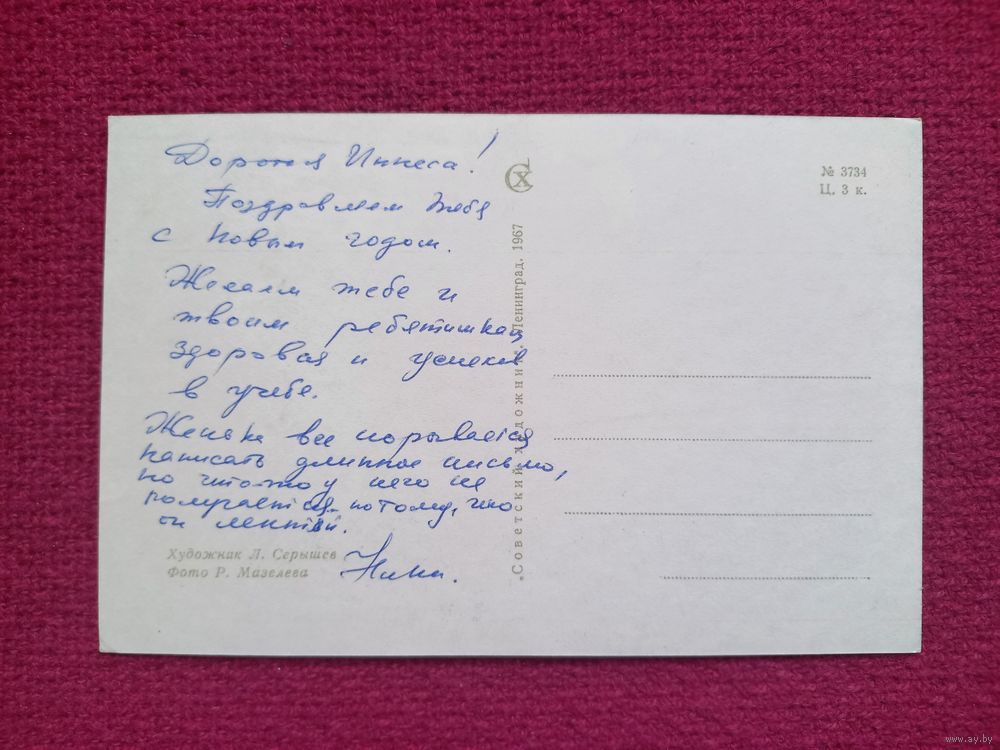 Дорогая Иннеса!
Поздравляем тебя
с Новым годом.
Желаем тебе и
твоим ребятишкам
здоровья и успехов
в учебе.
Женька все порывается
написать длинное письмо,
но что-то у него не
получается, потому, что
он лентяй.
Художник Л. Серышев
Фото Р. Мазелева
«Советский художник». Ленинград. 1967
СХ
№ 3734
Ц. 3 к.
www.ay.by